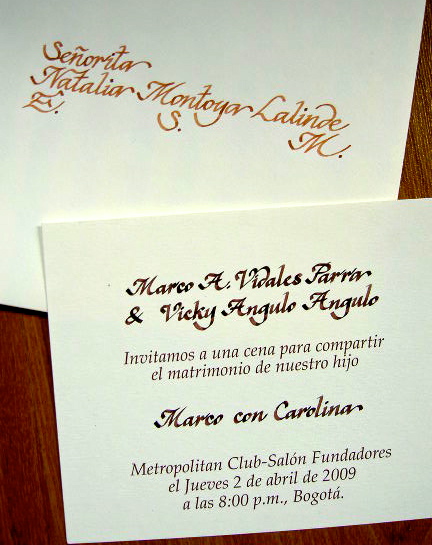 Señorita
Natalia Montoya Lalinde
E. S. M.
Marco A. Vidales Parra
& Vicky Angulo Angulo
Invitamos a una cena para compartir
el matrimonio de nuestro hijo
Marco con Carolina
Metropolitan Club-Salón Fundadores
el Jueves 2 de abril de 2009
a las 8:00 p.m., Bogotá.